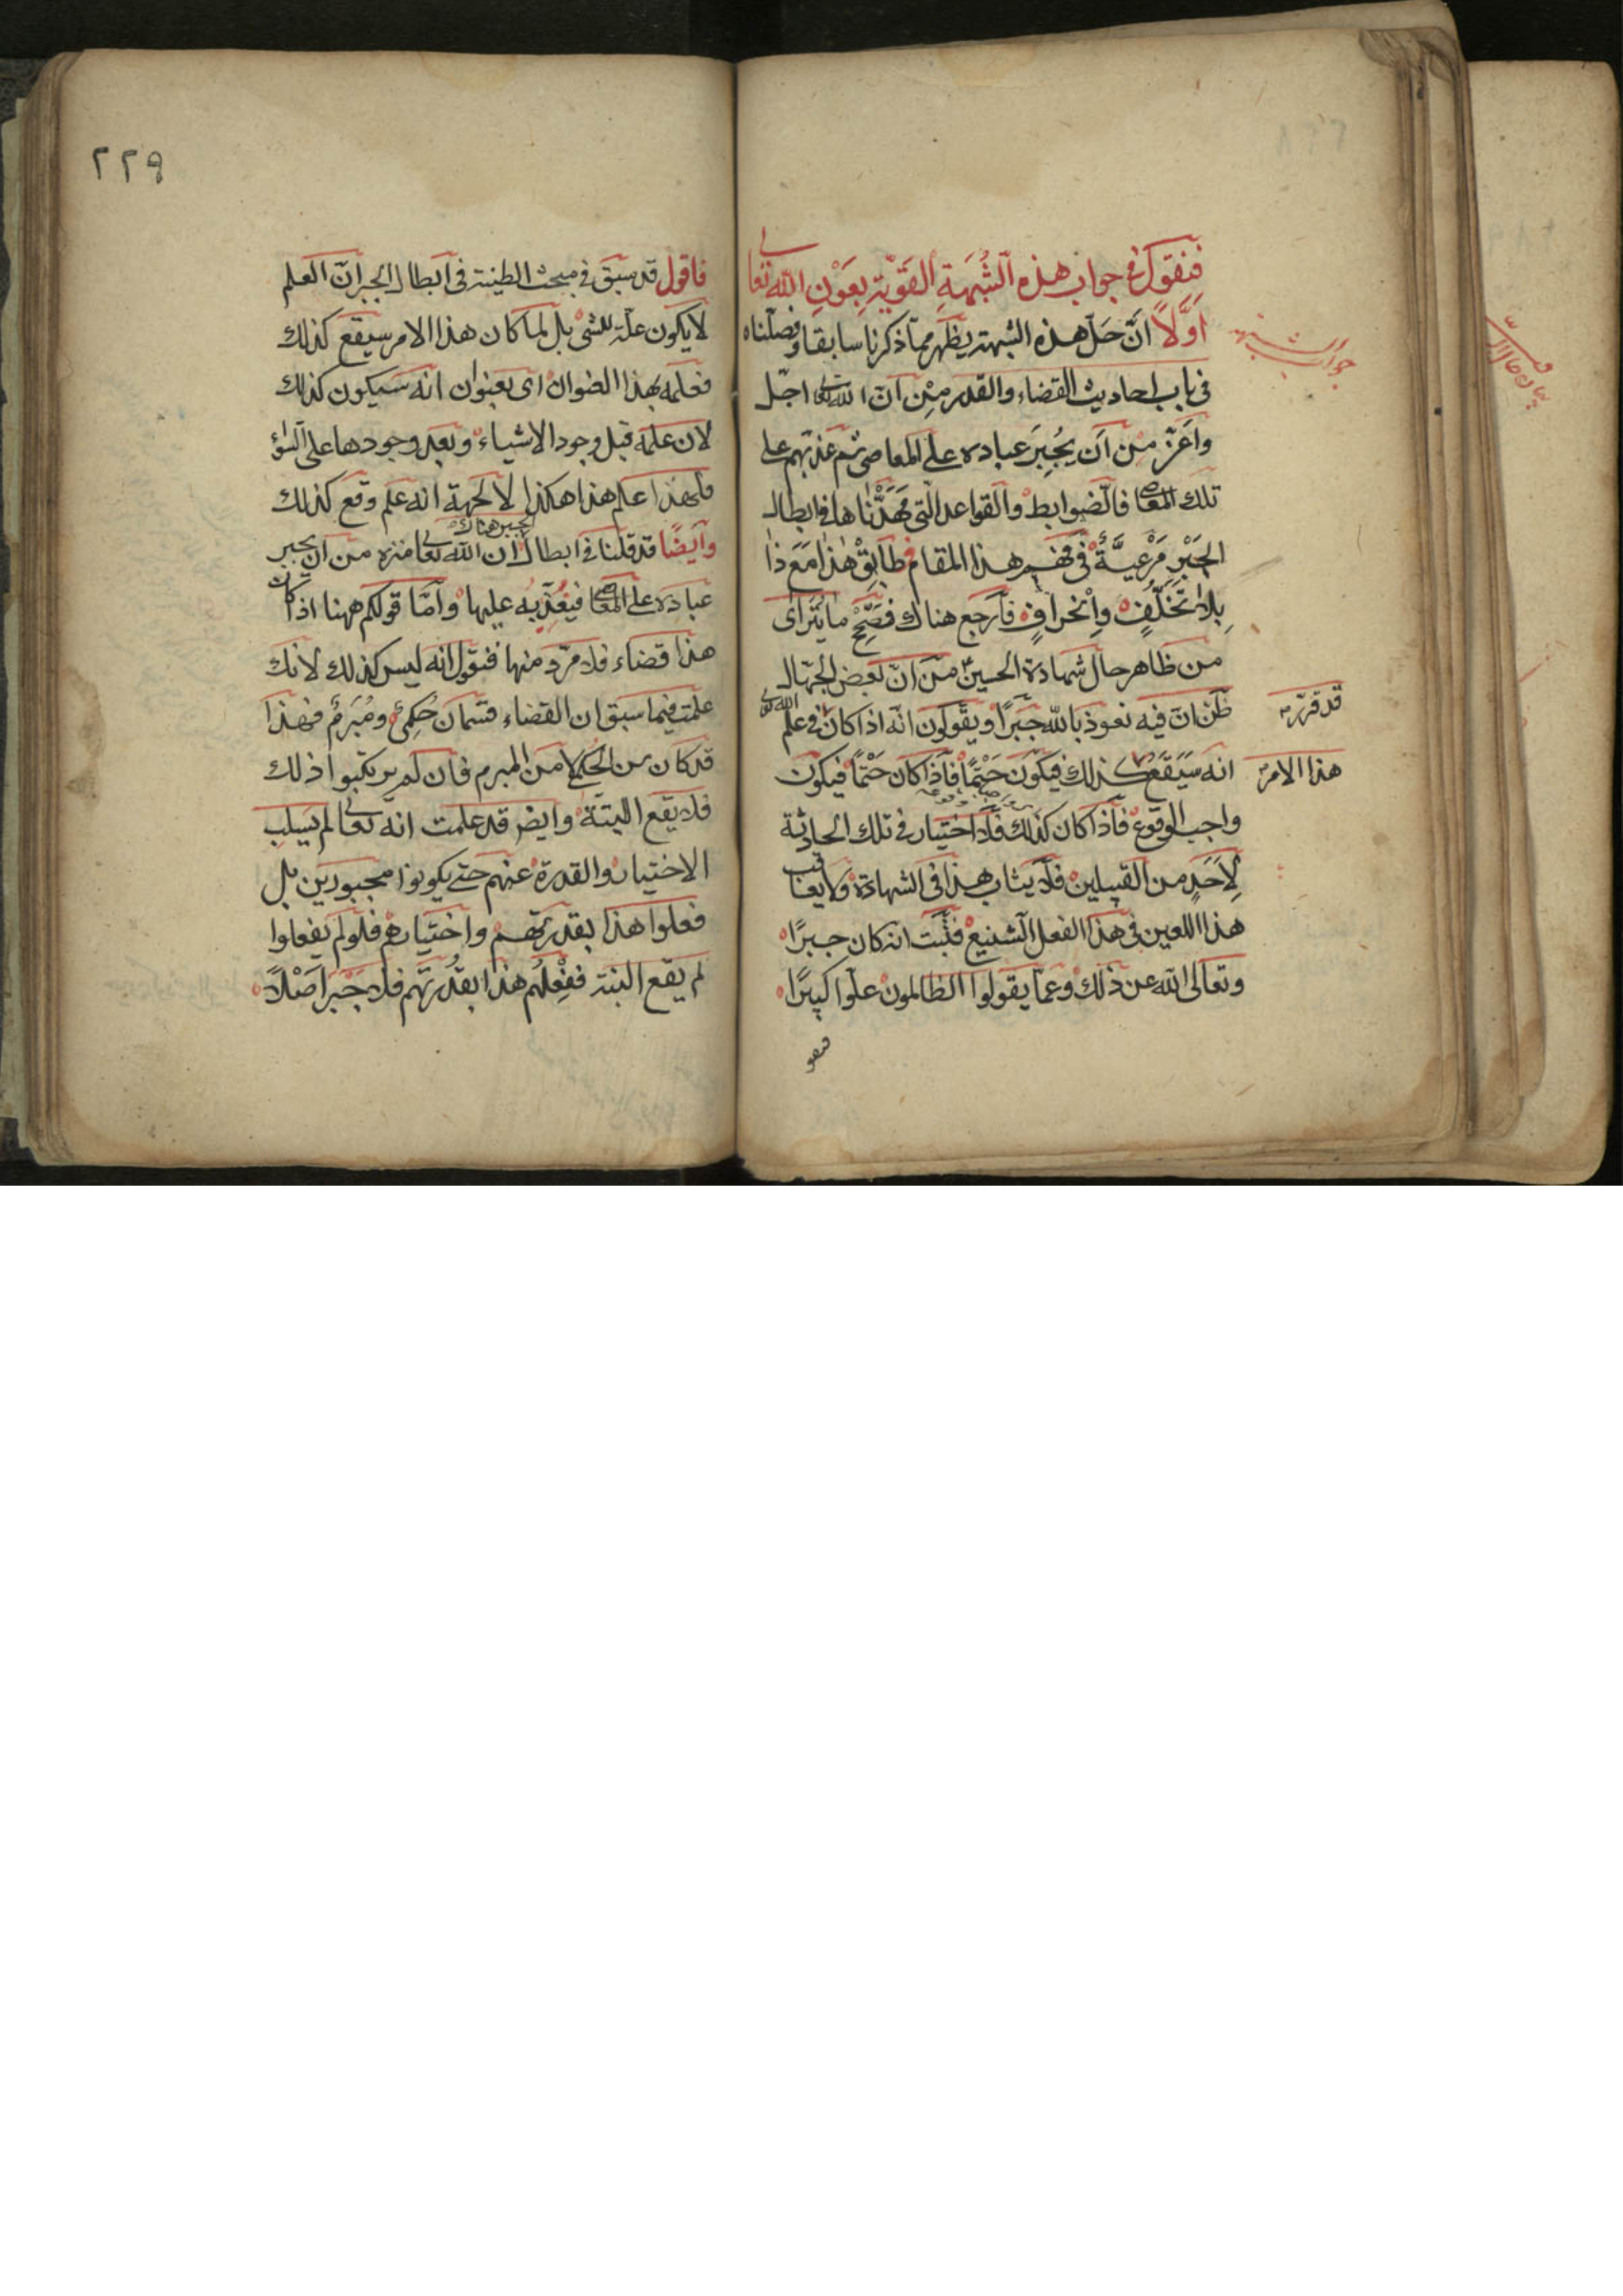 فنقول فى جواب هذه الشُبهَةِ القَوّية بعَوْنِ الله تعالى
اَوّلاً اَنّ حَلّ هذه الشبهة يظهر ممّا ذكرنا سابقا وفصلناه
فى باب احاديث القضاء والقدر مِنْ انّ الله تعالى اجّل
واَعَزّ من اَن يُجبِرَ عباده على المعاصى ثم عذبهم على
تلك المعاصى فالضوابط والقواعد التى مَهَّدْنٰاها فى ابطال
الجَبْرِ مَرْعيَّةٌ فى فهم هذا المقام فطَابِقْ هٰذا مَعَ ذٰا
بِلا تَخَلّفٍ وانحرافٍ فارجع هناك فصَحّحْ ما يُتَراٰى
من ظاهر حال شهادة الحسين ع من انّ بعض الجهّال
ظنّ انّ فيه نعوذ بالله جَبرًا ويقولون انّه اذا كان فى علم الله تعالى
قد قرّر
انه سَيَقَع كذلك فيكون حَتْمًا فاذا كان حَتْمًا فيكون
هذا الامر
واجب الوقوع فاذا كان كذلك فلا اختيار فى تلك الحادثة
لاَحَدٍ من القبيلين فلا يثاب هذا فى الشهادة ولا يعاقب
هذا اللعين فى هذا الفعل الشنيع فثبت انه كان جبرًا
وتعالى الله عن ذلك وعمّا يقولوا الظالمون علوا كبيرًا
فاقول قد سبق فى مبحث الطينة فى ابطال الجبر انّ العلم
لا يكون علّة للشئ بل لما كان هذا الامر سيقع كذلك
فعلمه بهذا العنوان اى بعنوان انه سيكون كذلك
لان علمه قبل وجود الاشياء وبعد وجودها على السؤ
فلهذا علم هذا هكذا لا لجهة انه علم وقع كذلك
وايضًا قد قلنا فى ابطال الجبر هناك ان الله تعالى منزه من ان يجبر
عباده على المعاصى فيعذّبه عليها واَمّا قولكم ههنا اذا كان
هذا قضاء فلا مرّد منها فنقول انه ليس كذلك لانك
علمت فيما سبق ان القضاء قسمان حُكمىٌ ومُبرَمٌ فهذا
قد كان من الحكمى لا من المبرم فان لم يرتكبوا ذلك
فلا يقع البتة وايضً قد علمت انه تعالى لم يسلب
الاختيار والقدرة عنهم حتى يكونوا مجبورين بل
فعلوا هذا بقدرتهم واختيارهم فلو لم يفعلوا
لم يقع البتة ففِعْلُهُم هذا بقُدْرَتهم فلا جَبْر اَصْلاً
٢٢٩